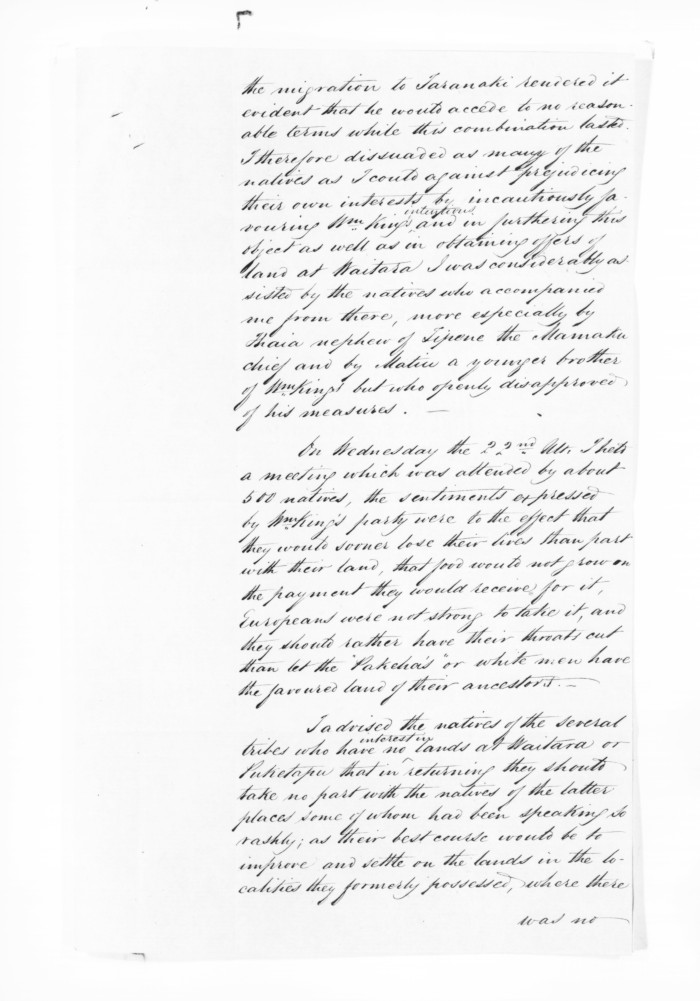 the migration to Taranaki rendered it
evident that he would accede to no reason-
able terms while this combination lasted.
I therefore dissuaded as many of the
natives as I could against prejudicing
their own interests by incautiously fa-
vouring Wm King's intentions and in furthering this
object as well as in obtaining offers of
land at Waitara I was considerably as
sisted by the natives who accompanied
me from there, more especially by
Ihaia nephew of Tipene the Mamaku
chief and by Matiu a younger brother
of Wm King's but who openly disapproved
of his measures. —
On Wednesday the 22nd Ulto. I held
a meeting which was attended by about
500 natives, the sentiments expressed
by Wm King's party were to the effect that
they would sooner lose their lives than part
with their land, that food would not grow on
the payment they would receive for it,
Europeans were not strong to take it, and
they should rather have their throats cut
than let the "Pakeha's" or white men have
the favoured land of their ancestors. —
I advised the natives of the several
tribes who have no interest in lands at Waitara or
Puketapu that in returning they should
take no part with the natives of the latter
places some of whom had been speaking so
rashly; as their best course would be to
improve and settle on the lands in the lo-
calities they formerly possessed, where there
was no